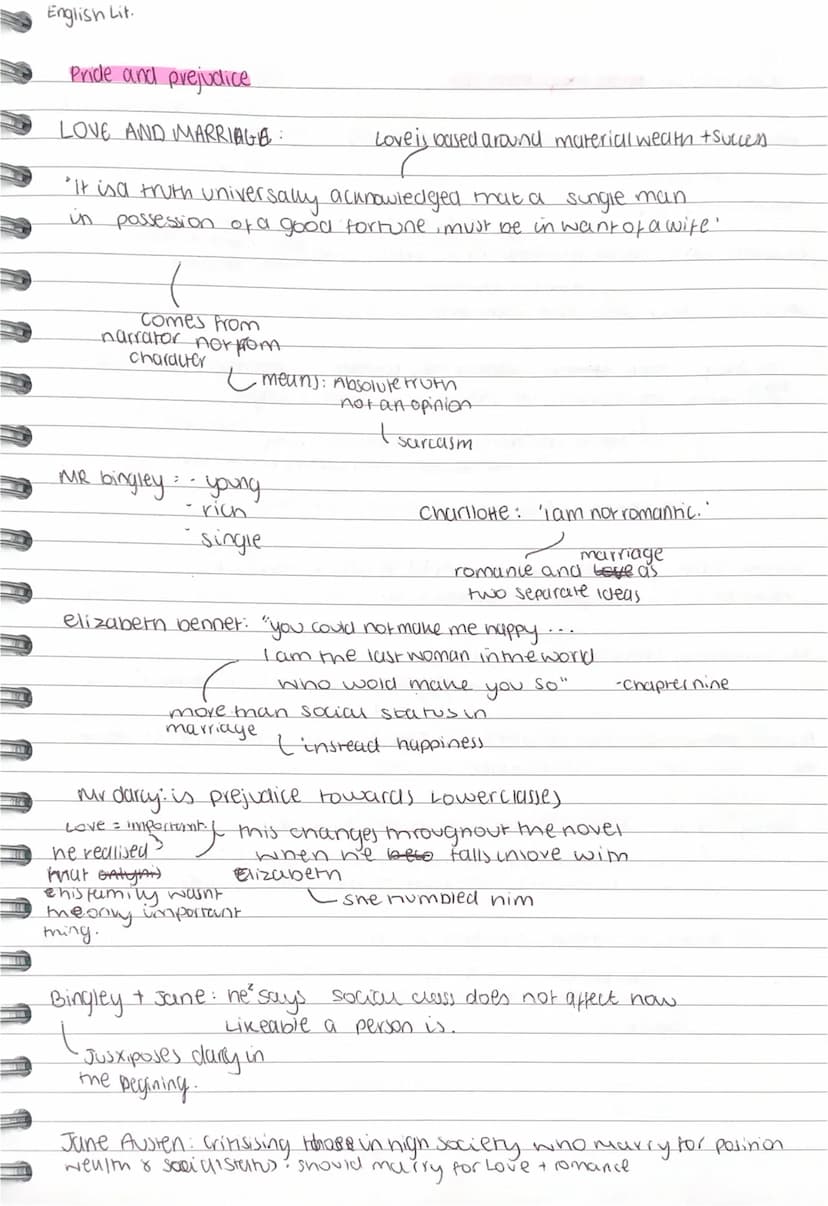 English Lit.
Pride and prejudice
LOVE AND MARRIAGE:
Love is based around material wealth + success
'It is a truth universally acknowledged that a single man
in possession of a good fortune, must be in want of a wife'
comes from
narrator not from
character
means: Absolute truth
not an opinion
sarcasm
MR bingley: - young
- rich
- single
Charllotte: 'I am not romantic.'
marriage
romance and love as
two separate ideas
elizabeth bennet: "you could not make me happy ...
I am the last woman in the world
who wold make you so" - chapter nine
more than social status in
marriage
instead happiness
Mr darcy: is prejudice towards lower classes
Love = important.
this changes throughout the novel
he realised
when he falls in love with
that
Elizabeth
this family wasnt
she humbled him
the only important
thing.
Bingley + Jane: he says social class does not affect how
likeable a person is.
Jusxiposes darcy in
the begining.
Jane Austen: Critisising those in high society who marry for position
wealth & social status: should marry for love + romance